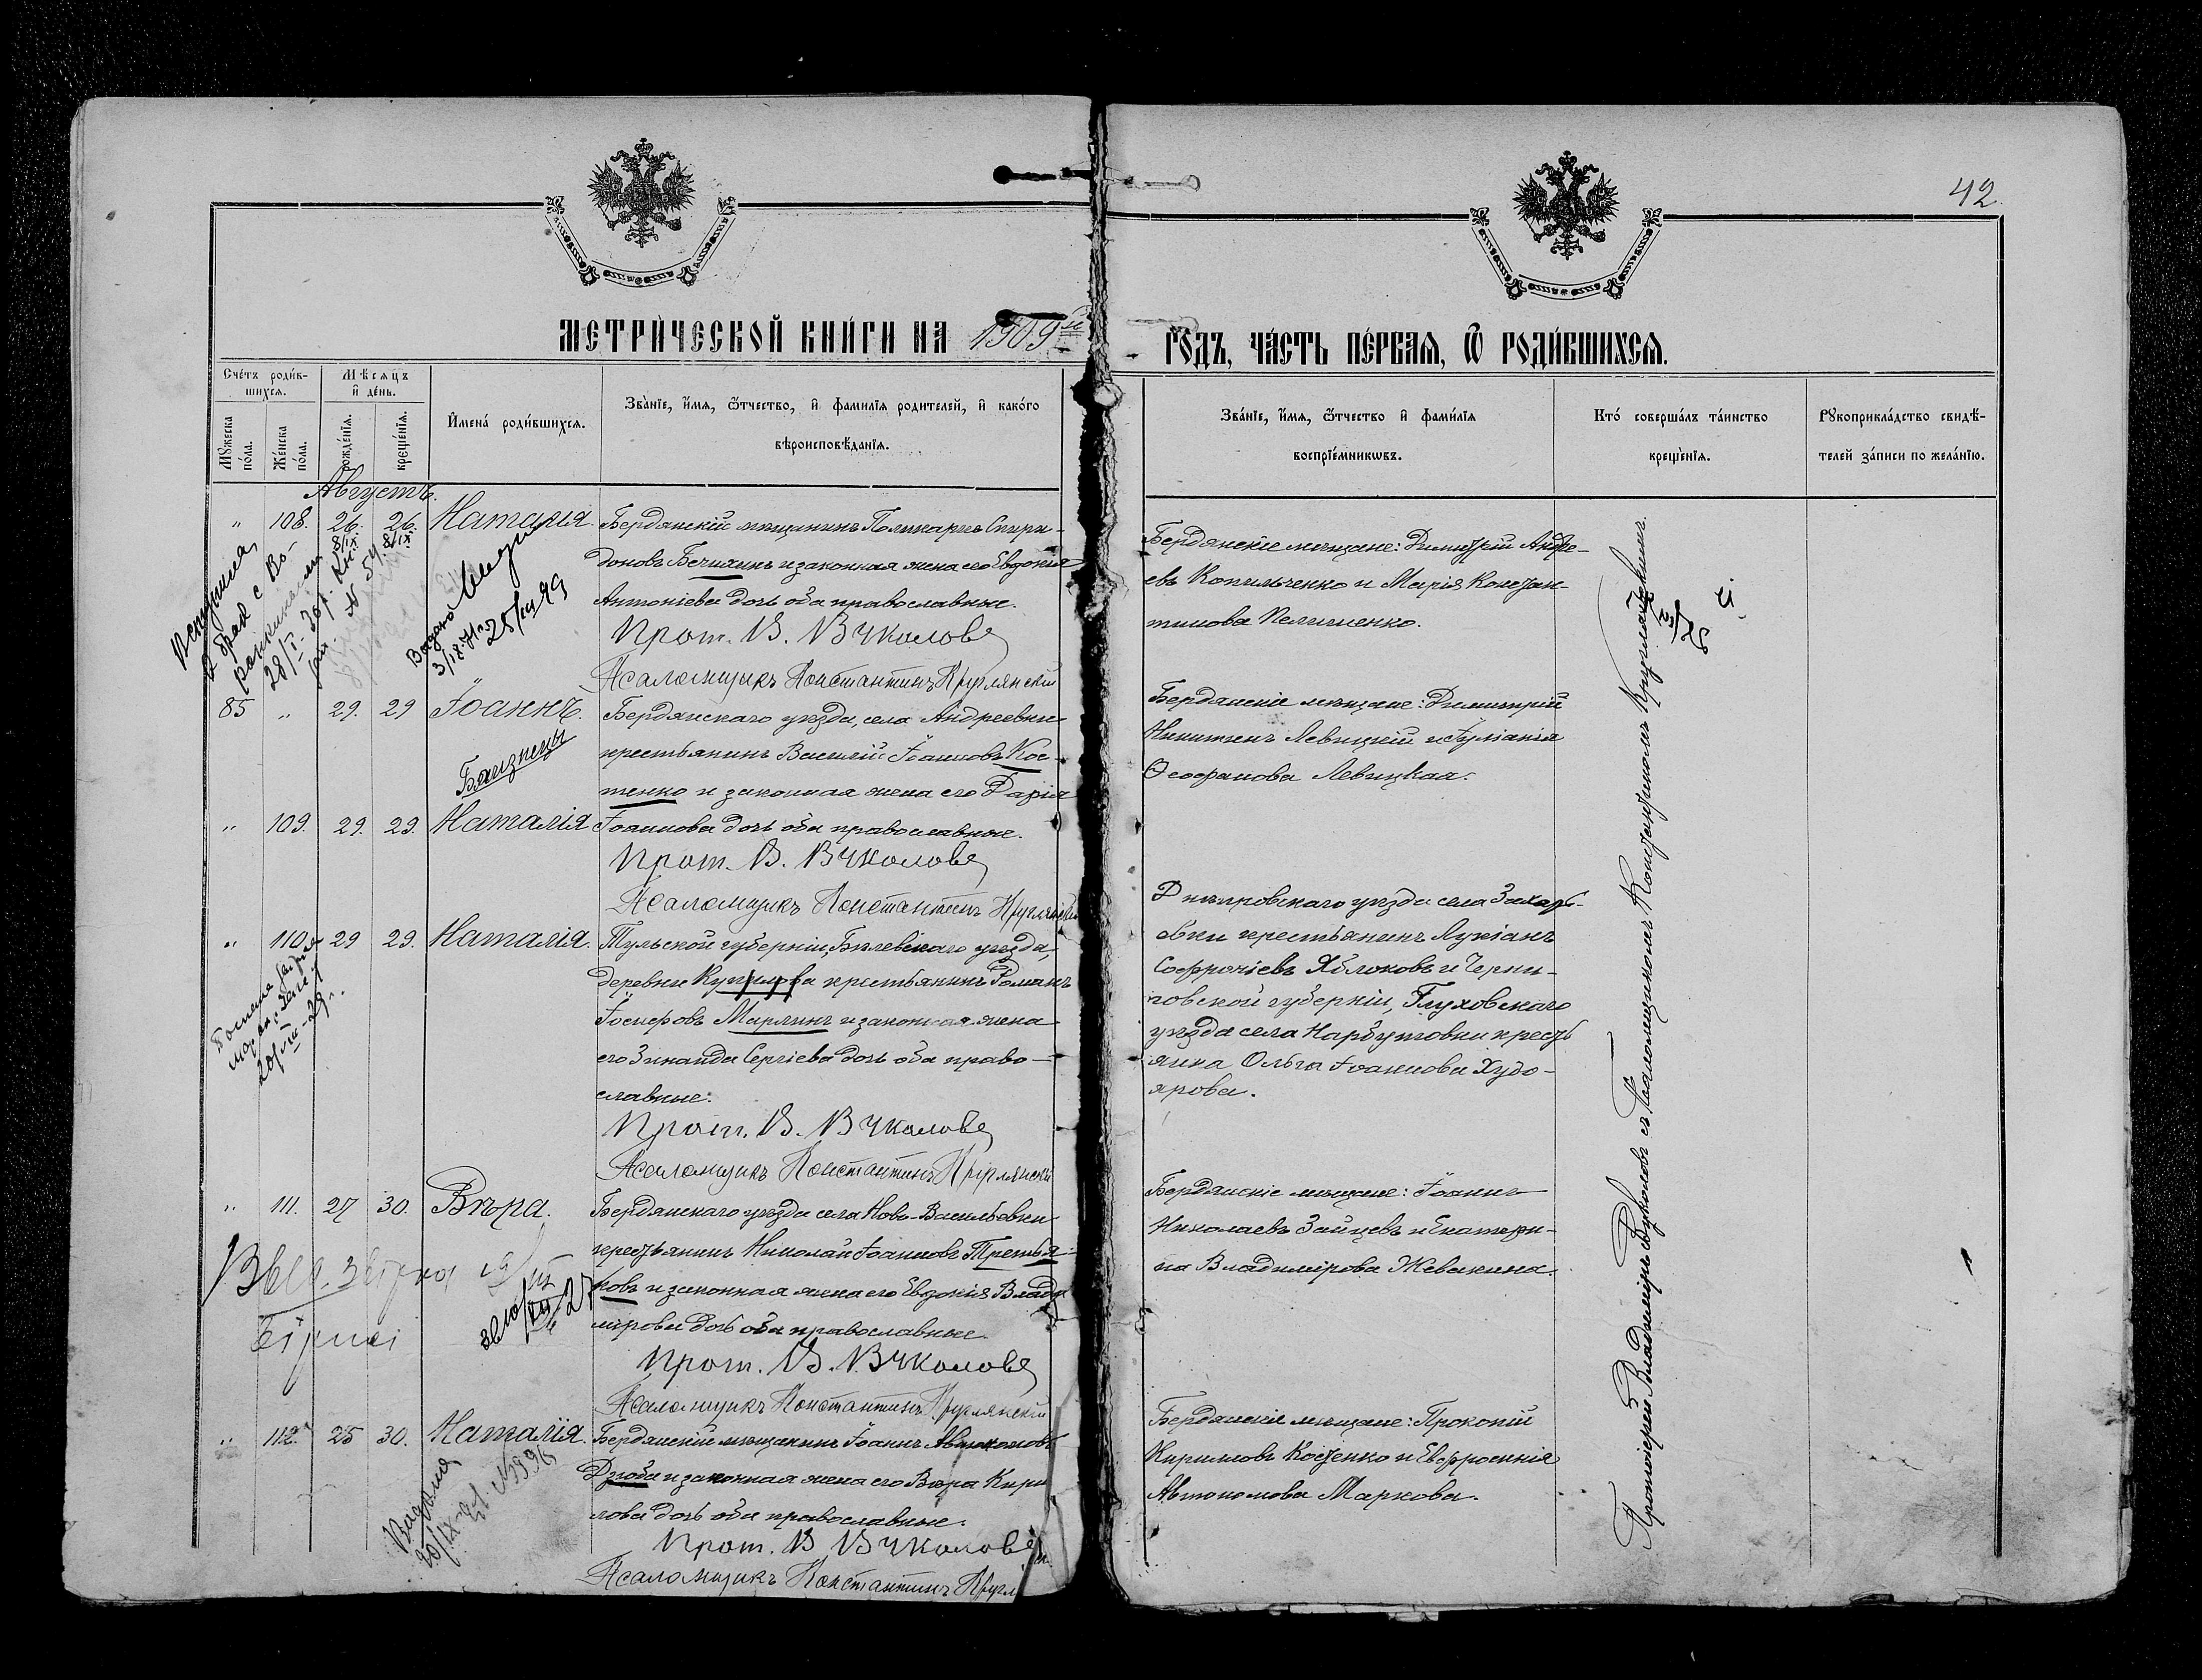 42
МЕТРИЧЕСКОЙ КНИГИ НА 1909й ГОДЪ, ЧАСТЬ ПЕРВАЯ, Ѽ РОДИВШИХСЯ.
Счетъ родив-
шихся.
Мужеска пола.
Женска пола.
Мѣсяцъ
и день.
рожденія.
крещенія.
Имена родившихся.
Званіе, имя, ѿчество, и фамилія родителей, и какого
вѣроисповѣданія.
Званіе, имя, ѿчество и фамилія
воспріемникѡвъ.
Кто совершалъ таинство
крещенія.
Рукоприкладство свидѣ-
телей записи по желанію.
Августъ.
" 108. 26. 26. Наталія.
8/IX. 8/IX.
Бердянскій мѣщанинъ Поликарпъ Спири-
доновъ Бечиянъ и законная жена его Евдокія
Антоніева дочь оба православные.
Прот. В. Вуколовъ
Псаломщикъ Константинъ Круглянскій
Бердянскіе мѣщане: Димитрій Андре-
евъ Копильченко и Марія Констан-
тинова Пелипенко.
Вступила
в брак с Во-
28/I-30г.
Выдано
3/IX-71г.
25/III 49
85 " 29. 29 Іоаннъ.
Близнецы
Бердянскаго уѣзда, села Андреевки
крестьянинъ Василій Іоанновъ Кос-
тенко и законная жена его Дарія
" 109. 29. 29. Наталія
Іоаннова дочь оба православные.
Прот. В. Вуколовъ
Псаломщикъ Константинъ Круглянскій
Бердянскіе мѣщане: Димитрій
Никитинъ Левицкій и Іуліанія
Ѳеофанова Левицкая.
" 110. 29 29. Наталія.
Тульской губерніи, Бѣлевскаго уѣзда,
деревни крестьянинъ Романъ
Іосифовъ Марлинъ и законная жена
его Зинаида Сергіева дочь оба право-
славные.
Прот. В. Вуколовъ
Псаломщикъ Константинъ Круглянскій
Днѣпровскаго уѣзда села Захарь-
евки крестьянинъ Лукіанъ
Софроніевъ Яблоковъ и Черни-
говской губерніи, Глуховскаго
уѣзда села Нарбутовки кресть
янка Ольга Іоаннова Худо-
ярова.
20/VIII-29г.
" 111. 27 30. Вѣра.
Бердянскаго уѣзда села Ново-Васильевки
крестьянинъ Николай Іоанновъ Третья-
ковъ и законная жена его Евдокія Влади
мірова дочь оба православные.
Прот. В. Вуколовъ
Псаломщикъ Константинъ Круглянскій
Бердянскіе мѣщане: Іоаннъ
Николаевъ Зайцевъ и Екатери-
на Владимірова Жевакина.
" 112. 25 30. Наталія.
Бердянскій мѣщанинъ Іоаннъ Автономовъ
Дзюба и законная жена его Вѣра Кири
лова дочь оба православные.
Прот. В Вуколовъ
Псаломщикъ Константинъ Кругл
Бердянскіе мѣщане: Прокопій
Кирилловъ Костенко и Евфросинія
Автономова Маркова.
Протоіерей Владиміръ Вуколовъ съ Псаломщикомъ Константиномъ Круглянскимъ.